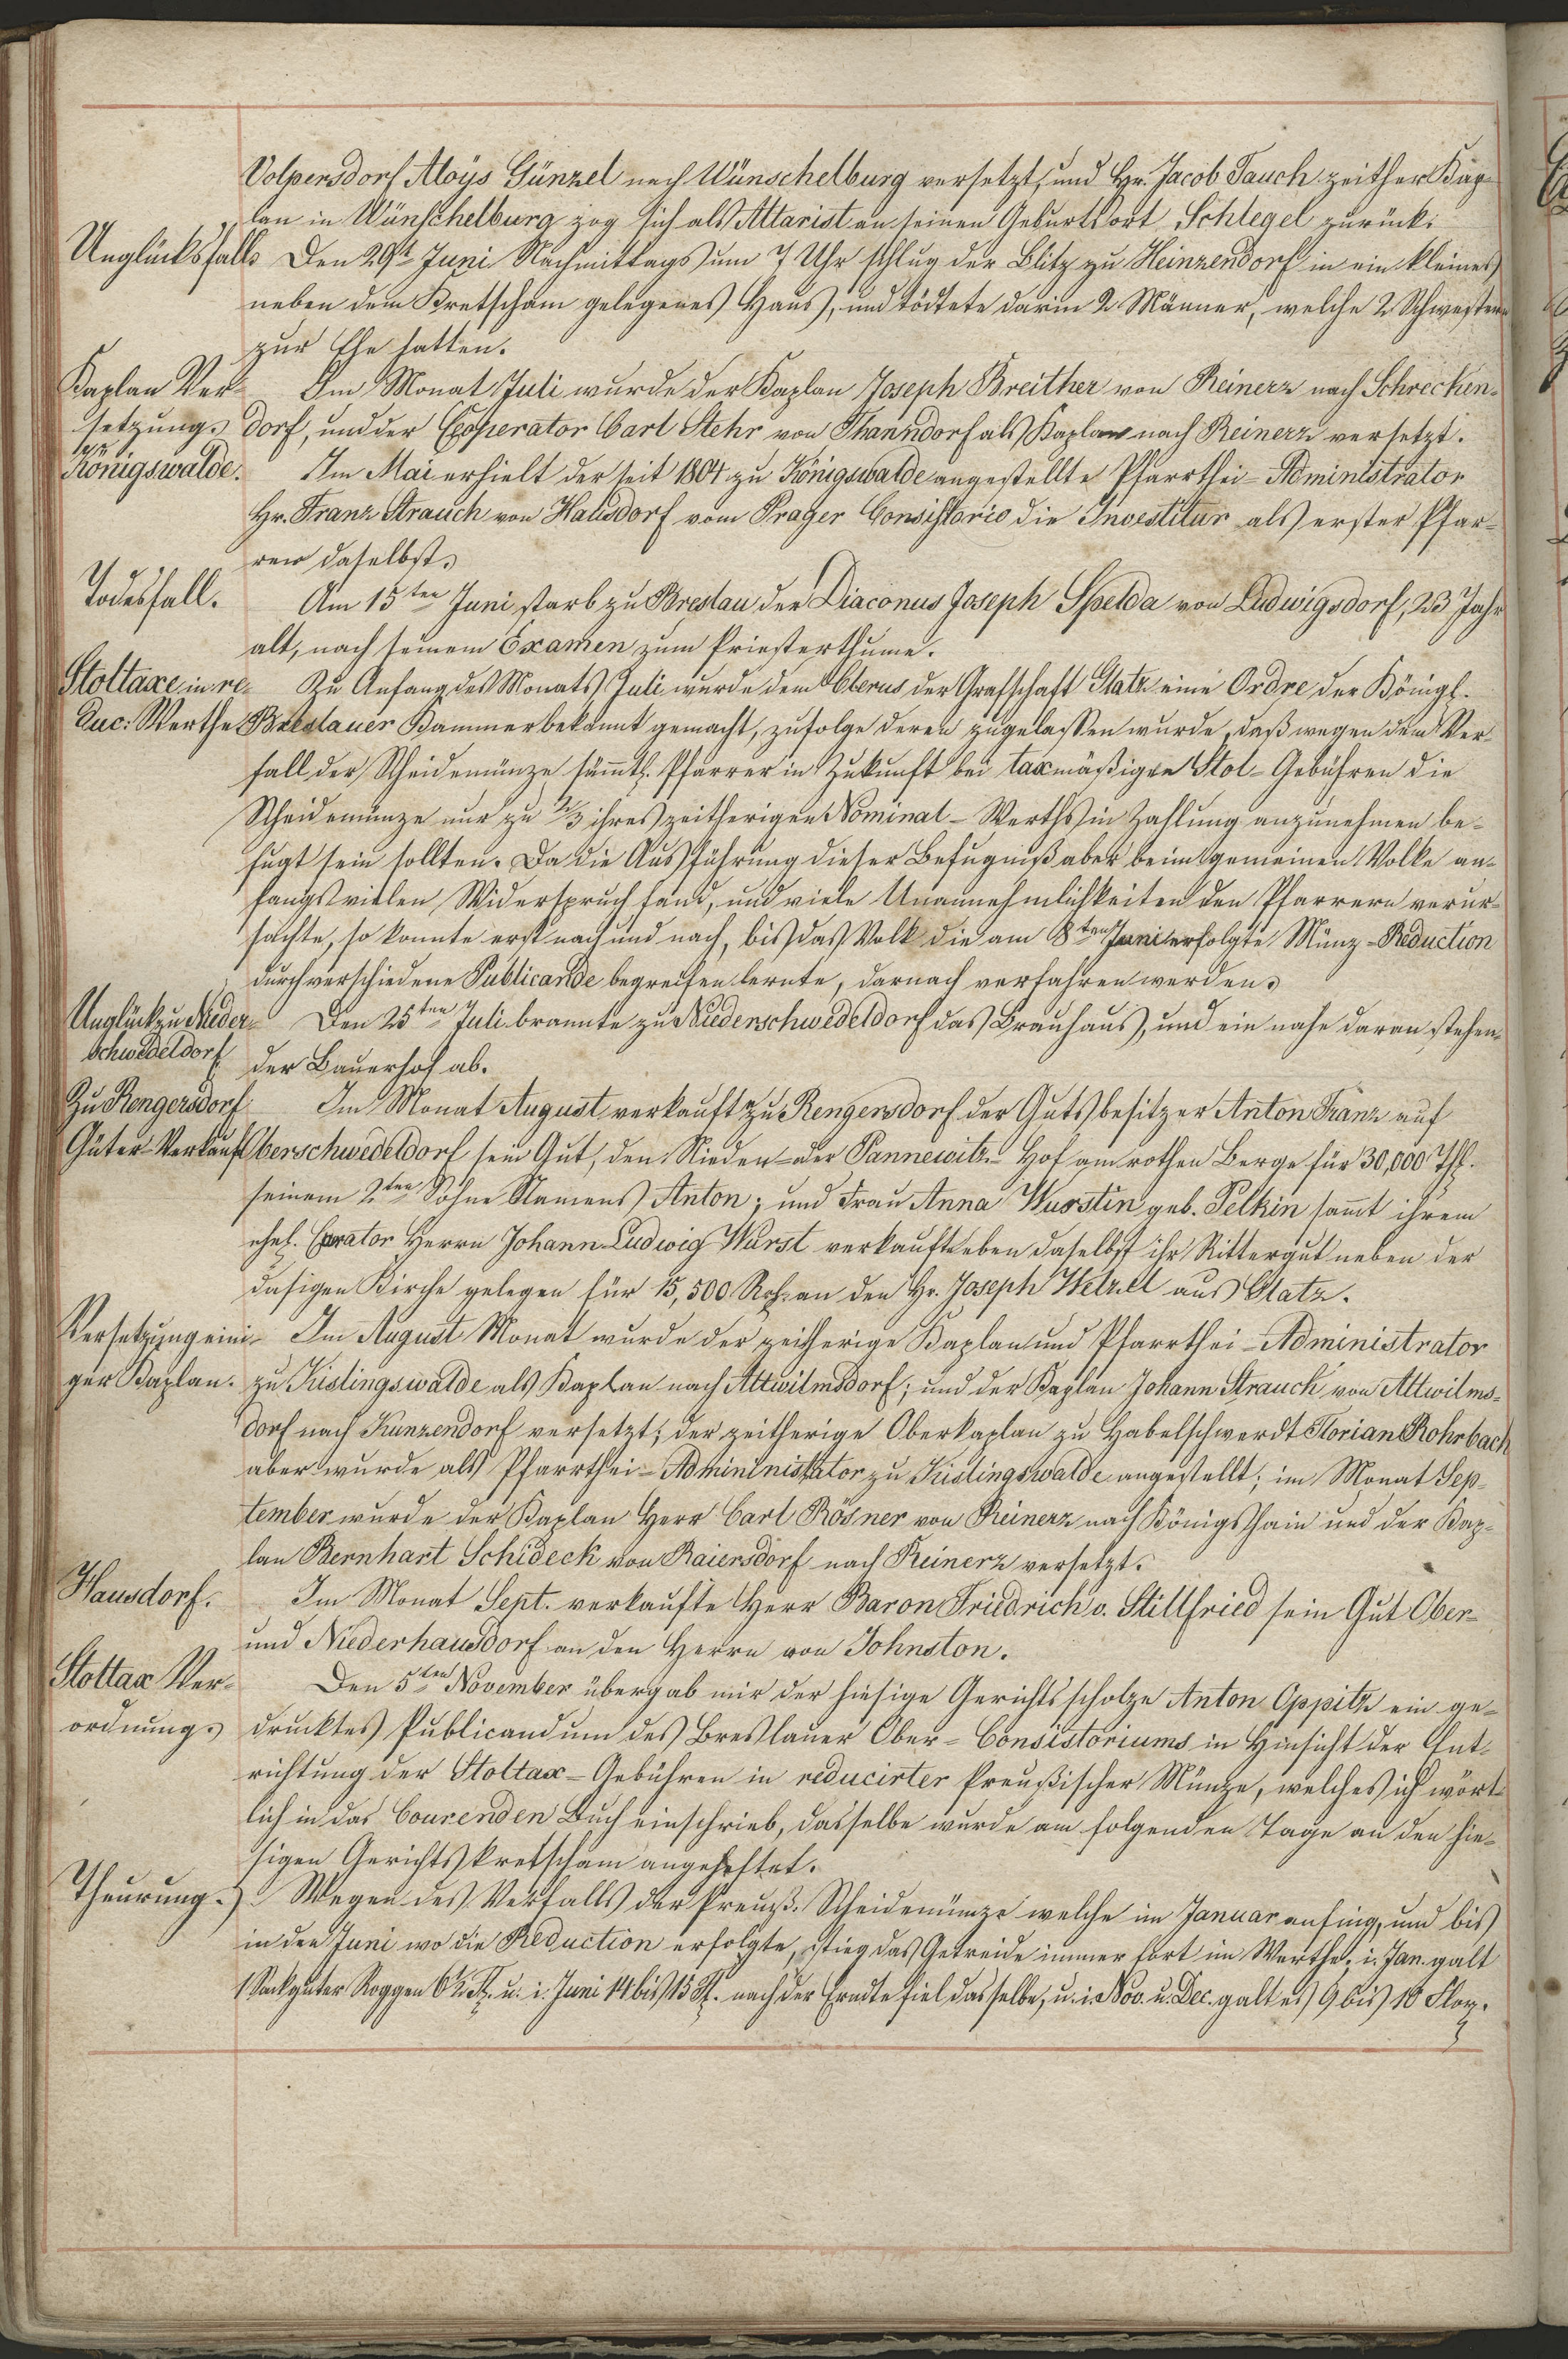 Volpersdorf Aloÿs Günzel nach Wünschelburg versetzt, und Hr. Jacob Tauch zeither Kap-
lan in Wünschelburg zog sich als Altarist an seinen Geburtsort Schlegel zurück.
Unglücksfall.
Den 29t Juni Nachmittags um 7 Uhr schlug der Blitz zu Heinzendorf in ein kleines
neben dem Kretscham gelegenes Haus, und tödtete darin 2 Männer, welche 2 Schwestern
zur Ehe hatten.
Kaplan Ver-
setzung.
Im Monat Juli wurde der Kaplan Joseph Breither von Reinerz nach Schrecken-
dorf, und der Cooperator Carl Stehr von Thanndorf als Kaplan nach Reinerz versetzt.
zu
Königswalde.
Im Mai erhielt der seit 1804 zu Königswalde angestellte Pfarrthei-Administrator
Hr. Franz Strauch von Hausdorf vom Prager Consistorio die Investitur als erster Pfar-
rer daselbst.
Todesfall.
Am 15ten Juni starb zu Breslau der Diaconus Joseph Spelda von Ludwigsdorf, 23 Jahr
alt, nach seinem Examen zum Priesterthume.
Stoltaxe in re-
duc: Werthe
Zu Anfang des Monats Juli wurde dem Clerus der Grafschaft Glatz eine Ordre der Königl.
Breslauer Kammer bekannt gemacht, zufolge deren zugelassen wurde, daß wegen dem Ver-
fall der Scheidemünze sämmtl. Pfarrer in Zukunft bei taxmäßigen Stol-Gebühren die
Scheidemünze nur zu 2/3 ihres zeitherigen Nominal-Werths in Zahlung anzunehmen be-
fugt sein sollten. Da die Ausführung dieser Befugniß aber beim gemeinen Volke an-
fangs vielen Widerspruch fand, und viele Unannehmlichkeiten den Pfarrern verur-
sachte, so konnte erst nach und nach, bis das Volk die am 8ten Juni erfolgte Münz-Reduction
durch verschiedene Publicande begreifen lernte, darnach verfahren werden.
Unglück zu Nieder-
schwedeldorf
Den 25ten Juli brannte zu Niederschwedeldorf das Brauhaus, und ein nahe daran stehen-
der Bauerhof ab.
Zu Rengersdorf
Güter-Verkauf
Im Monat August verkaufte zu Rengersdorf der Gutsbesitzer Anton Franz auf
Oberschwedeldorf sein Gut, den Nieder- oder Pannewitz-Hof am rothen Berge für 30,000 Thl.
seinem 2ten Sohne Namens Anton; und Frau Anna Wurstin geb. Pelkin sammt ihrem
ehel. Curator Herrn Johann Ludwig Wurst verkaufte eben daselbst ihr Rittergut neben der
dasigen Kirche gelegen für 15,500 Rth. an den Hr. Joseph Wetzel aus Glatz.
Versetzung eini-
ger Kaplan.
Im August Monat wurde der zeitherige Kaplan und Pfarrthei-Administrator
zu Kislingswalde als Kaplan nach Altwilmsdorf; und der Kaplan Johann Strauch von Altwilms-
dorf nach Kunzendorf versetzt; der zeitherige Oberkaplan zu Habelschwerdt Florian Rohrbach
aber wurde als Pfarrthei-Admininistrator zu Kislingswalde angestellt; im Monat Sep-
tember wurde der Kaplan Herr Carl Rösner von Reinerz nach Königshain und der Kap-
lan Bernhart Schideck von Raiersdorf nach Reinerz versetzt.
Hausdorf.
Im Monat Sept. verkaufte Herr Baron Friedrich v. Stillfried sein Gut Ober-
und Niederhausdorf an den Herrn von Johnston.
Stoltax Ver-
ordnung.
Den 5ten November übergab mir der hiesige Gerichtsscholze Anton Oppitz ein ge-
drucktes Publicandum des Breslauer Ober-Consistoriums in Hinsicht der Ent-
richtung der Stoltax-Gebühren in reducirter Preußischer Münze, welches ich wört-
lich in das Courenden Buch einschrieb, dasselbe wurde am folgenden Tage an den hie-
sigen Gerichtskretscham angeheftet.
Theurung.
Wegen des Verfalls der Preuß. Scheidemünze welche im Januar anfing, und bis
in den Juni wo die Reduction erfolgte, stieg das Getreide immer fort im Werthe; i. Jan. galt
1 Sack guter Roggen 6½ Fl. u. i. Juni 14 bis 15 Fl. nach der Erndte fiel dasselbe, u. i. Nov. u. Dec. galt es 9 bis 10 Flor.